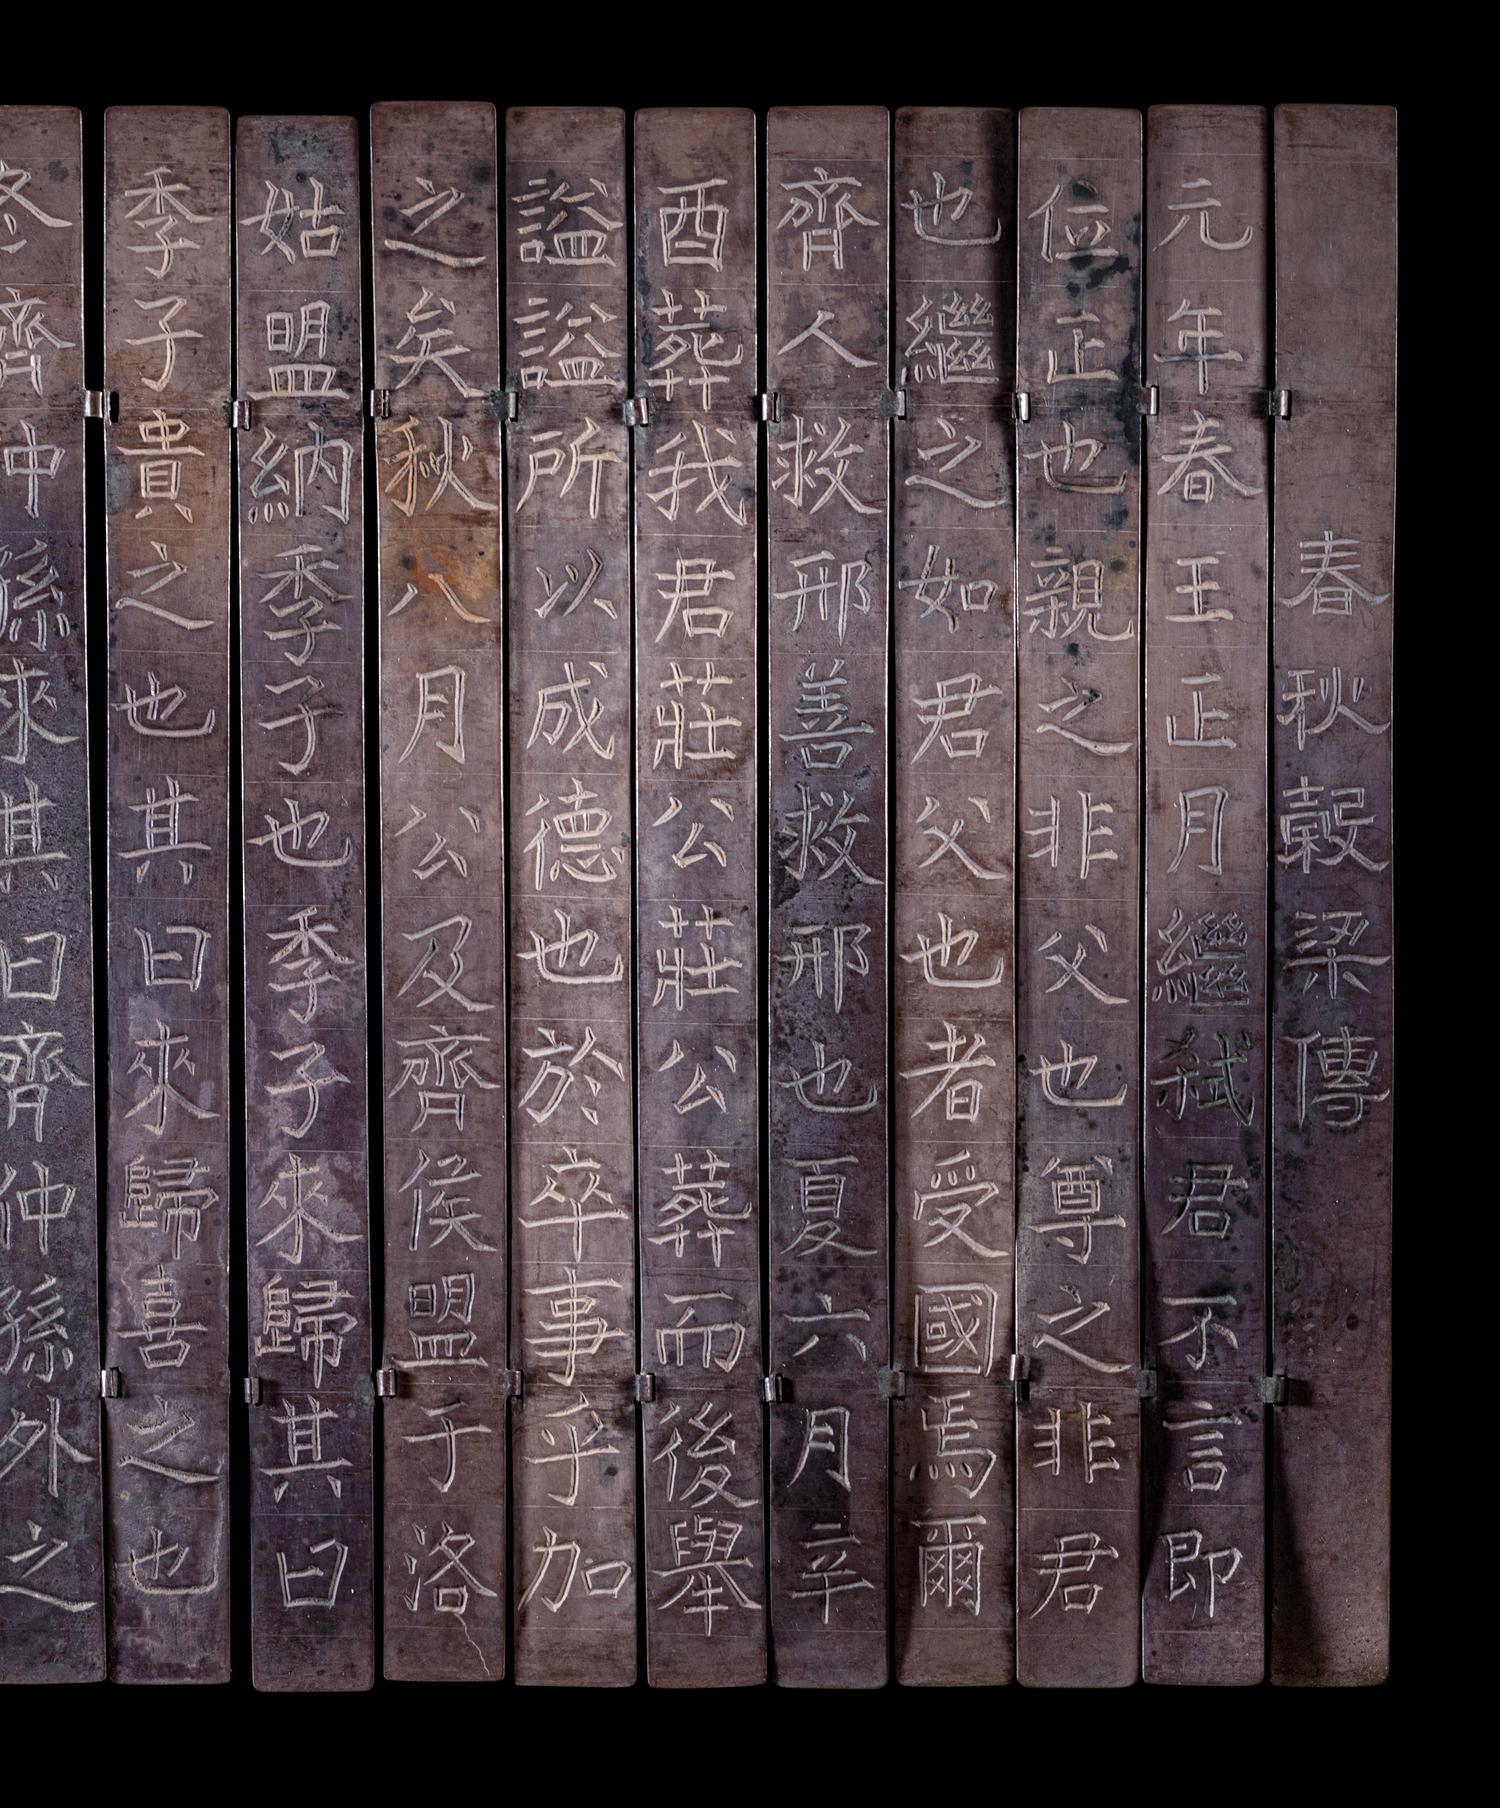 春秋穀梁傳
元年春王正月繼弒君不言即
位正也親之非父也尊之非君
也繼之如君父也者受國焉爾
齊人救邢善救邢也夏六月辛
酉葬我君莊公莊公葬而後舉
謚謚所以成德也於卒事乎加
之矣秋八月公及齊侯盟于洛
姑盟納季子也季子來歸其曰
季子貴之也其曰來歸喜之也
冬齊仲孫來其曰齊仲孫外之